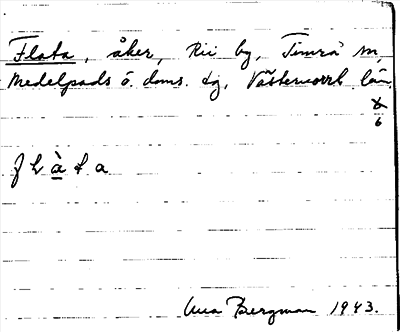 Flata, åker, Rii by, Timrå sn,
Medelpads ö. doms. dg, Västernorrl län.
6
flàta
Ana Bergman 1943.